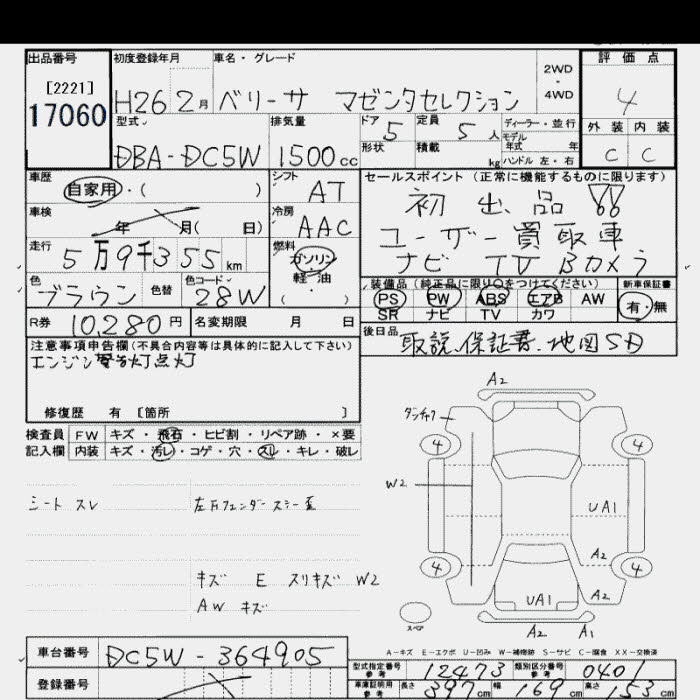 出品番号 初度登録年月 車名・グレード 2WD・4WD 評価点
[2221]
17060 H26 2月 ベリーサ マゼンタセレクション 4
型式 排気量 ドア 5 定員 5人 ディーラー・並行 外装 内装
DBA-DC5W 1500cc 形状 積載 kg モデル年式 年 ハンドル 左・右 C C
車歴 自家用・( ) シフト AT セールスポイント(正常に機能するものに限ります)
車検 年 月( 日) 冷房 AAC 初出品!!
走行 5万9千355km 燃料 ガソリン・軽油 ( ) ユーザー買取車
ナビ TV Bカメラ
色 ブラウン 色替 色コード 28W 装備品(純正品に限り○をつけてください) 新車保証書
PS PW ABS エアB AW 有・無
SR ナビ TV カワ
R券 10,280円 名変期限 月 日 後日品
取説、保証書、地図SD
注意事項申告欄(不具合内容等は具体的に記入して下さい)
エンジン警告灯点灯
修復歴 有 [箇所 ]
検査員 FW キズ・飛石・ヒビ割・リペア跡・×要
記入欄 内装 キズ・汚レ・コゲ・穴・スレ・キレ・破レ
シート スレ
キズ E スリキズ W2
AW キズ
A2
4 4
W2
UA1
A2
4 4
UA1 A2
スペア
A2 A1
A-キズ E-エクボ U-凹み W-補修跡 S-サビ C-腐食 XX-交換済
車台番号 DC5W-364905
型式指定番号 参考 12473 類別区分番号 参考 0401
登録番号 車庫証明用 参考 長さ 397cm 幅 169cm 高さ 53cm